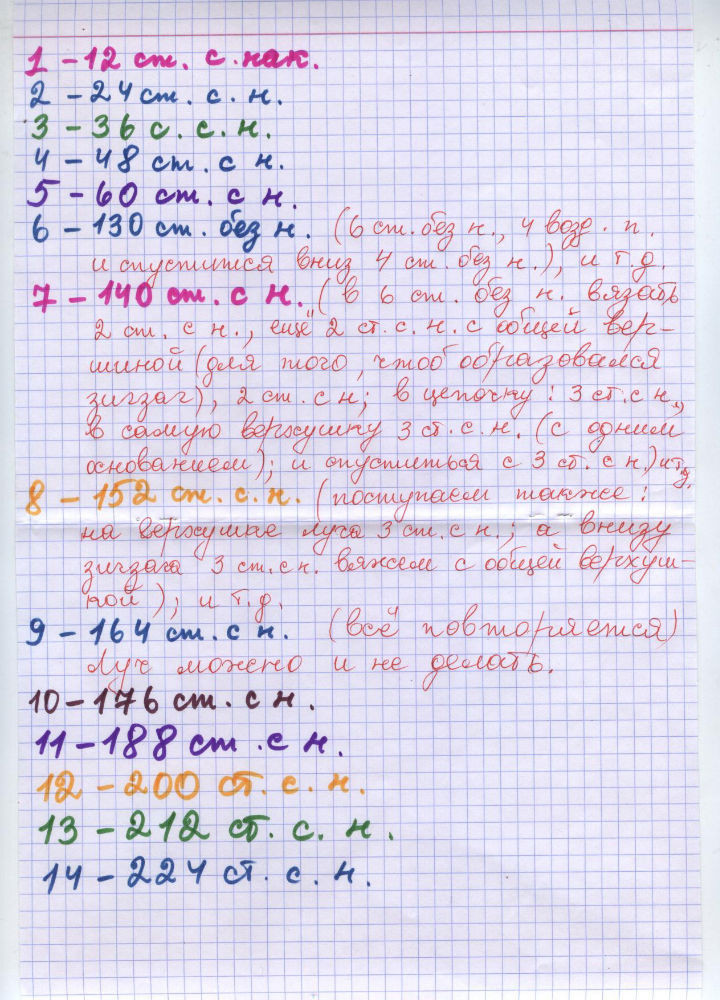 1 - 12 ст. с нак.
2 - 24 ст. с. н.
3 - 36 с. с. н.
4 - 48 ст. с н.
5 - 60 ст. с н.
6 - 130 ст. без н. (6 ст. без н., 4 возд. п.
и спуститься вниз 4 ст. без н.), и т.д.
7 - 140 ст. с н. (в 6 ст. без н. вязать
2 ст. с н., ещё 2 ст. с. н. с общей вер-
шиной (для того, чтоб образовался
зигзаг), 2 ст. с н; в цепочку: 3 ст. с н.,
в самую верхушку 3 ст. с. н. (с одним
основанием); и опуститься с 3 ст. с н.) и т.д.
8 - 152 ст. с. н. (поступаем также:
на верхушке луча 3 ст. с н.; а внизу
зигзага 3 ст. с н. вяжем с общей верхуш-
кой); и т.д.
9 - 164 ст. с н. (всё повторяется)
Луч можно и не делать.
10 - 176 ст. с н.
11 - 188 ст. с н.
12 - 200 ст. с. н.
13 - 212 ст. с. н.
14 - 224 ст. с. н.